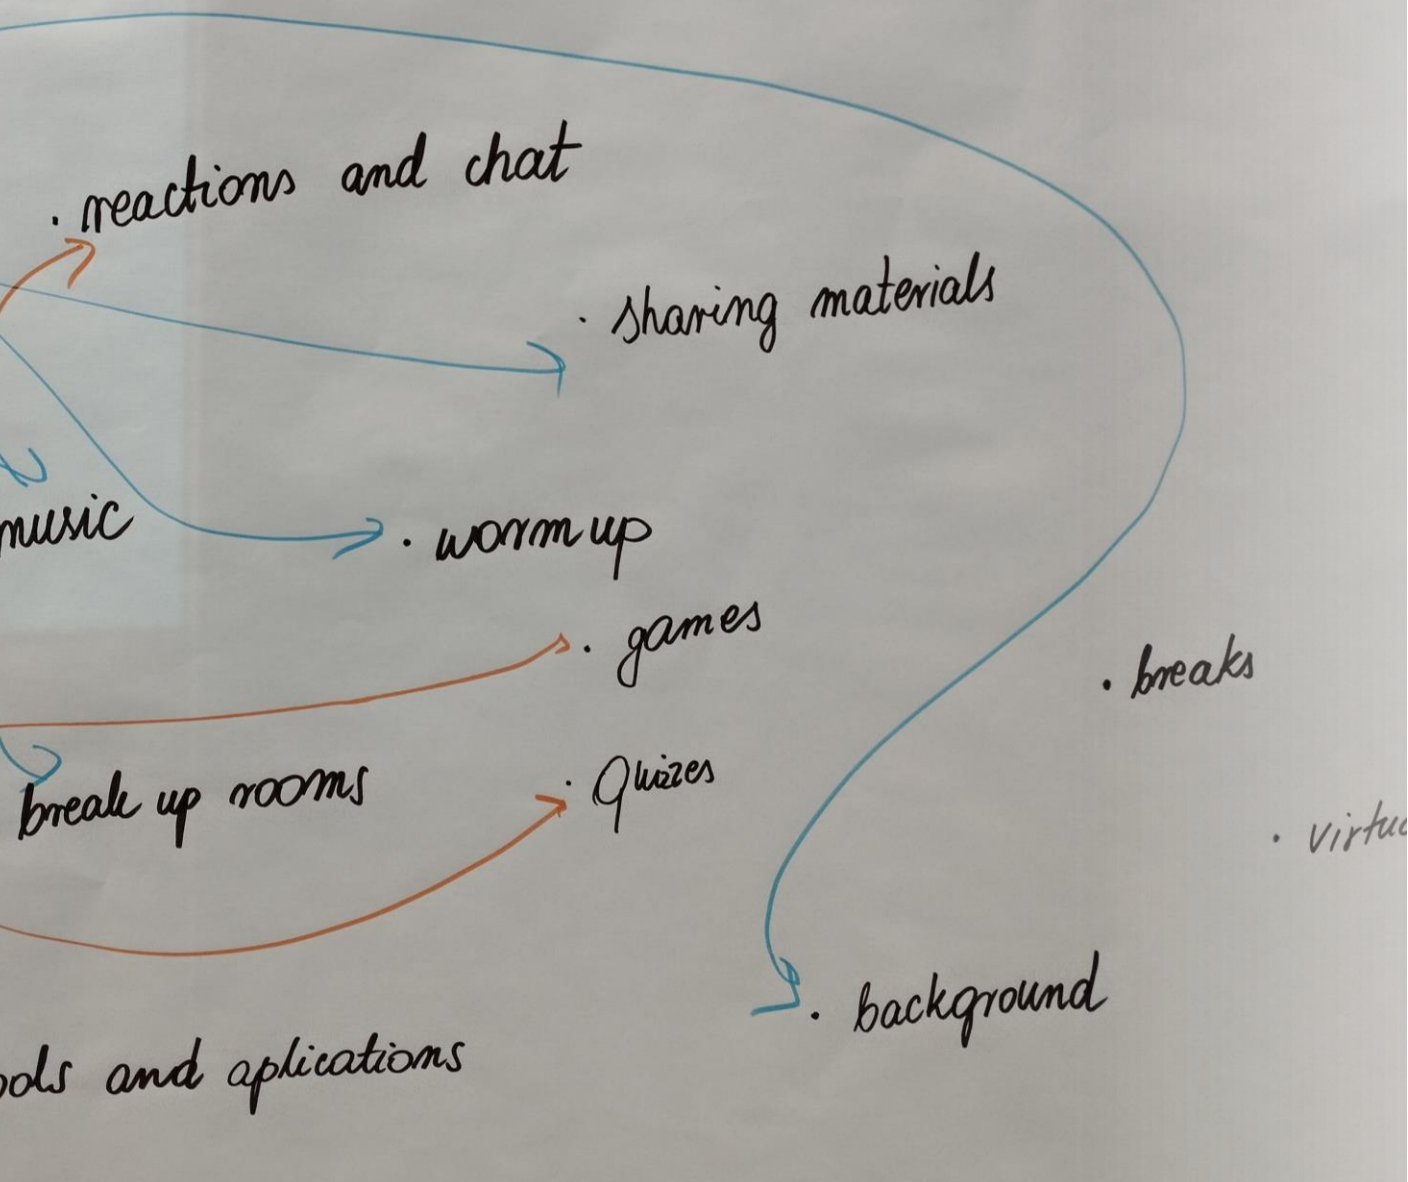 · reactions and chat
· sharing materials
music
· worm up
· games
· breaks
break up rooms
· Quizes
· background
and aplications